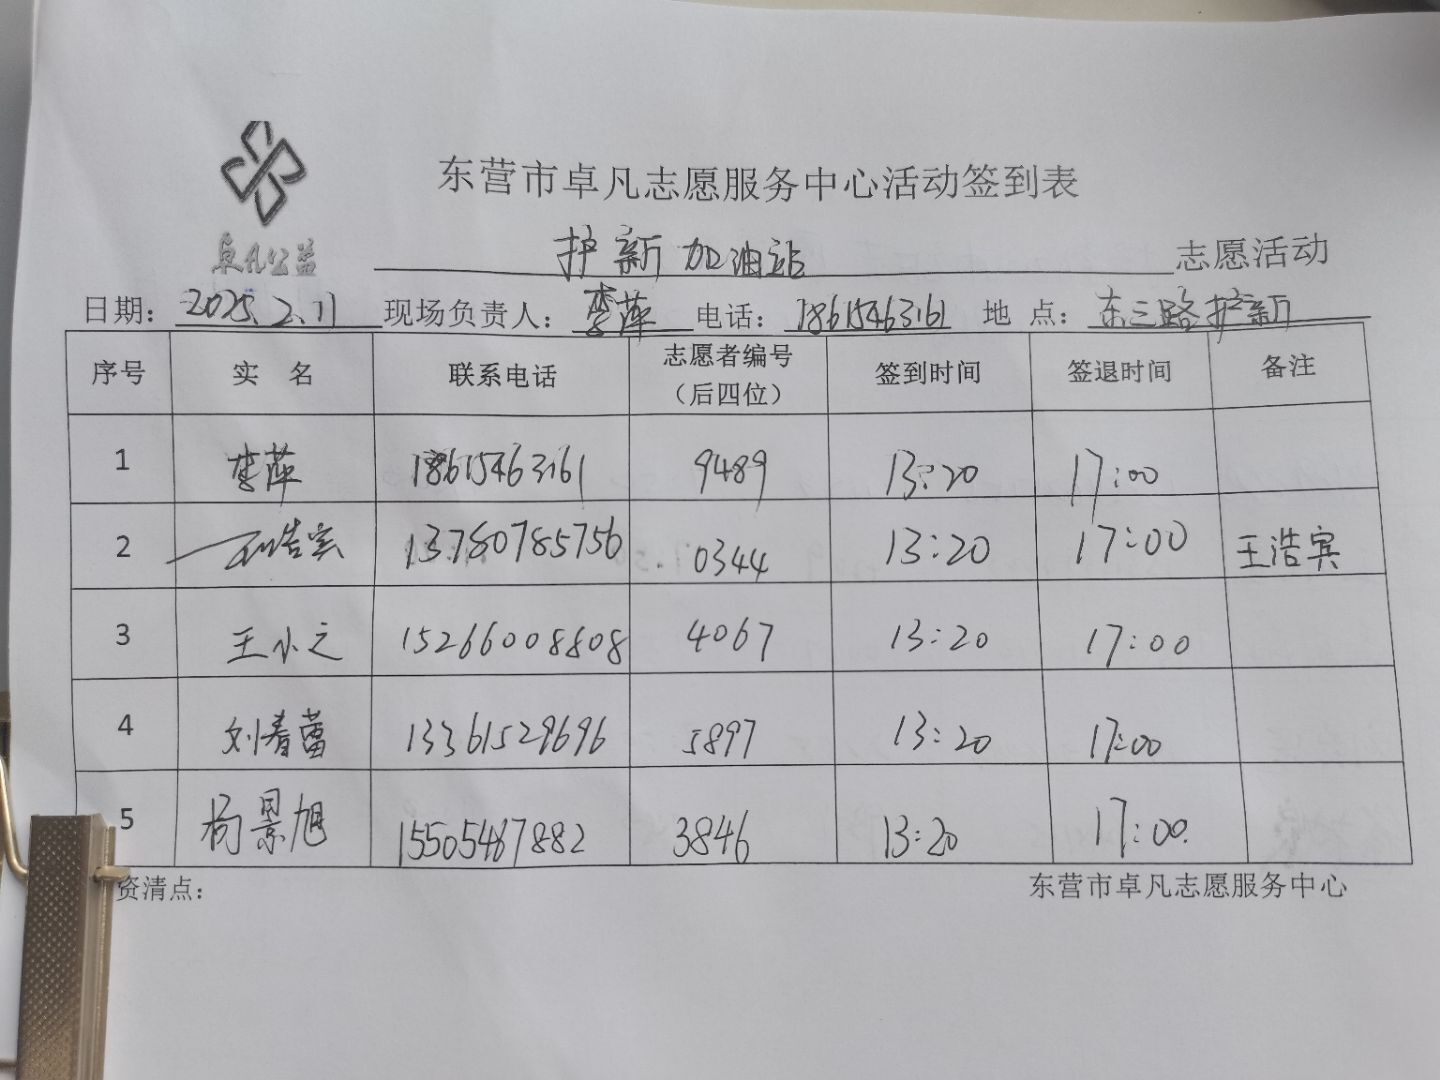 东营市卓凡志愿服务中心活动签到表
卓凡公益
护新加油站 志愿活动
日期：2025.2.11 现场负责人：李萍 电话：18615463161 地 点：东三路护新
序号 实 名 联系电话 志愿者编号（后四位） 签到时间 签退时间 备注
1 李萍 18615463161 9489 13:20 17:00
2 王浩宾 13780785756 0344 13:20 17:00 王浩宾
3 王小之 15266008808 4067 13:20 17:00
4 刘春蕾 13361529696 5897 13:20 17:00
5 杨景旭 15505487882 3846 13:20 17:00.
资清点：
东营市卓凡志愿服务中心